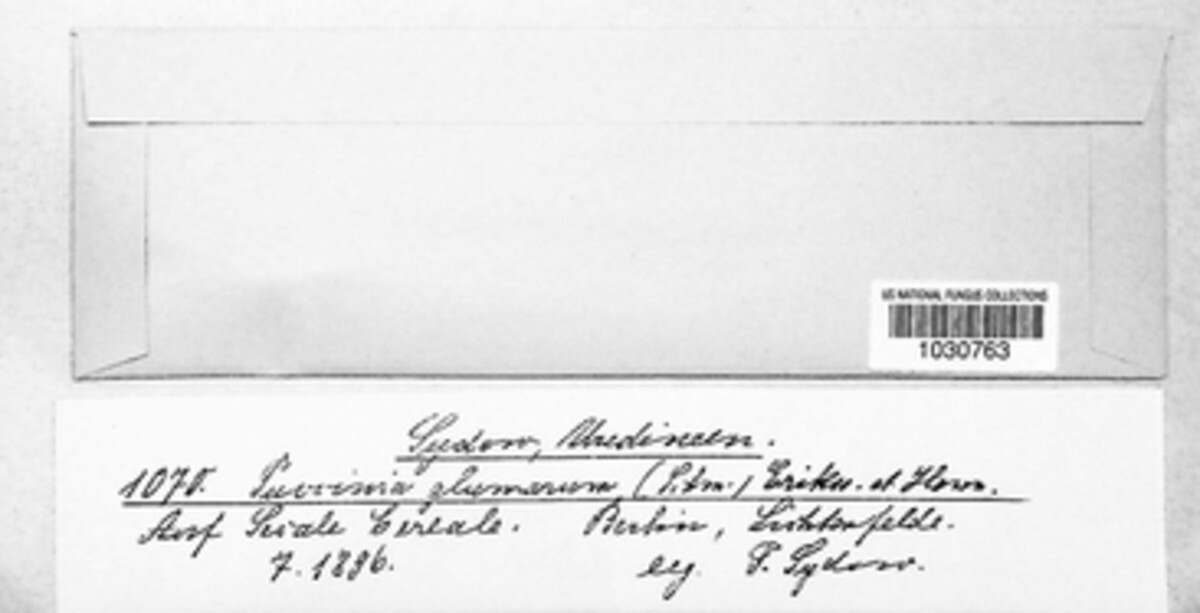 US NATIONAL FUNGUS COLLECTIONS
1030763
Sydow, Uredineen.
1070. Puccinia glumarum (Schm.) Erikss. et Henn.
Auf Secale Cereale. Berlin, Lichterfelde.
7. 1896. leg. P. Sydow.